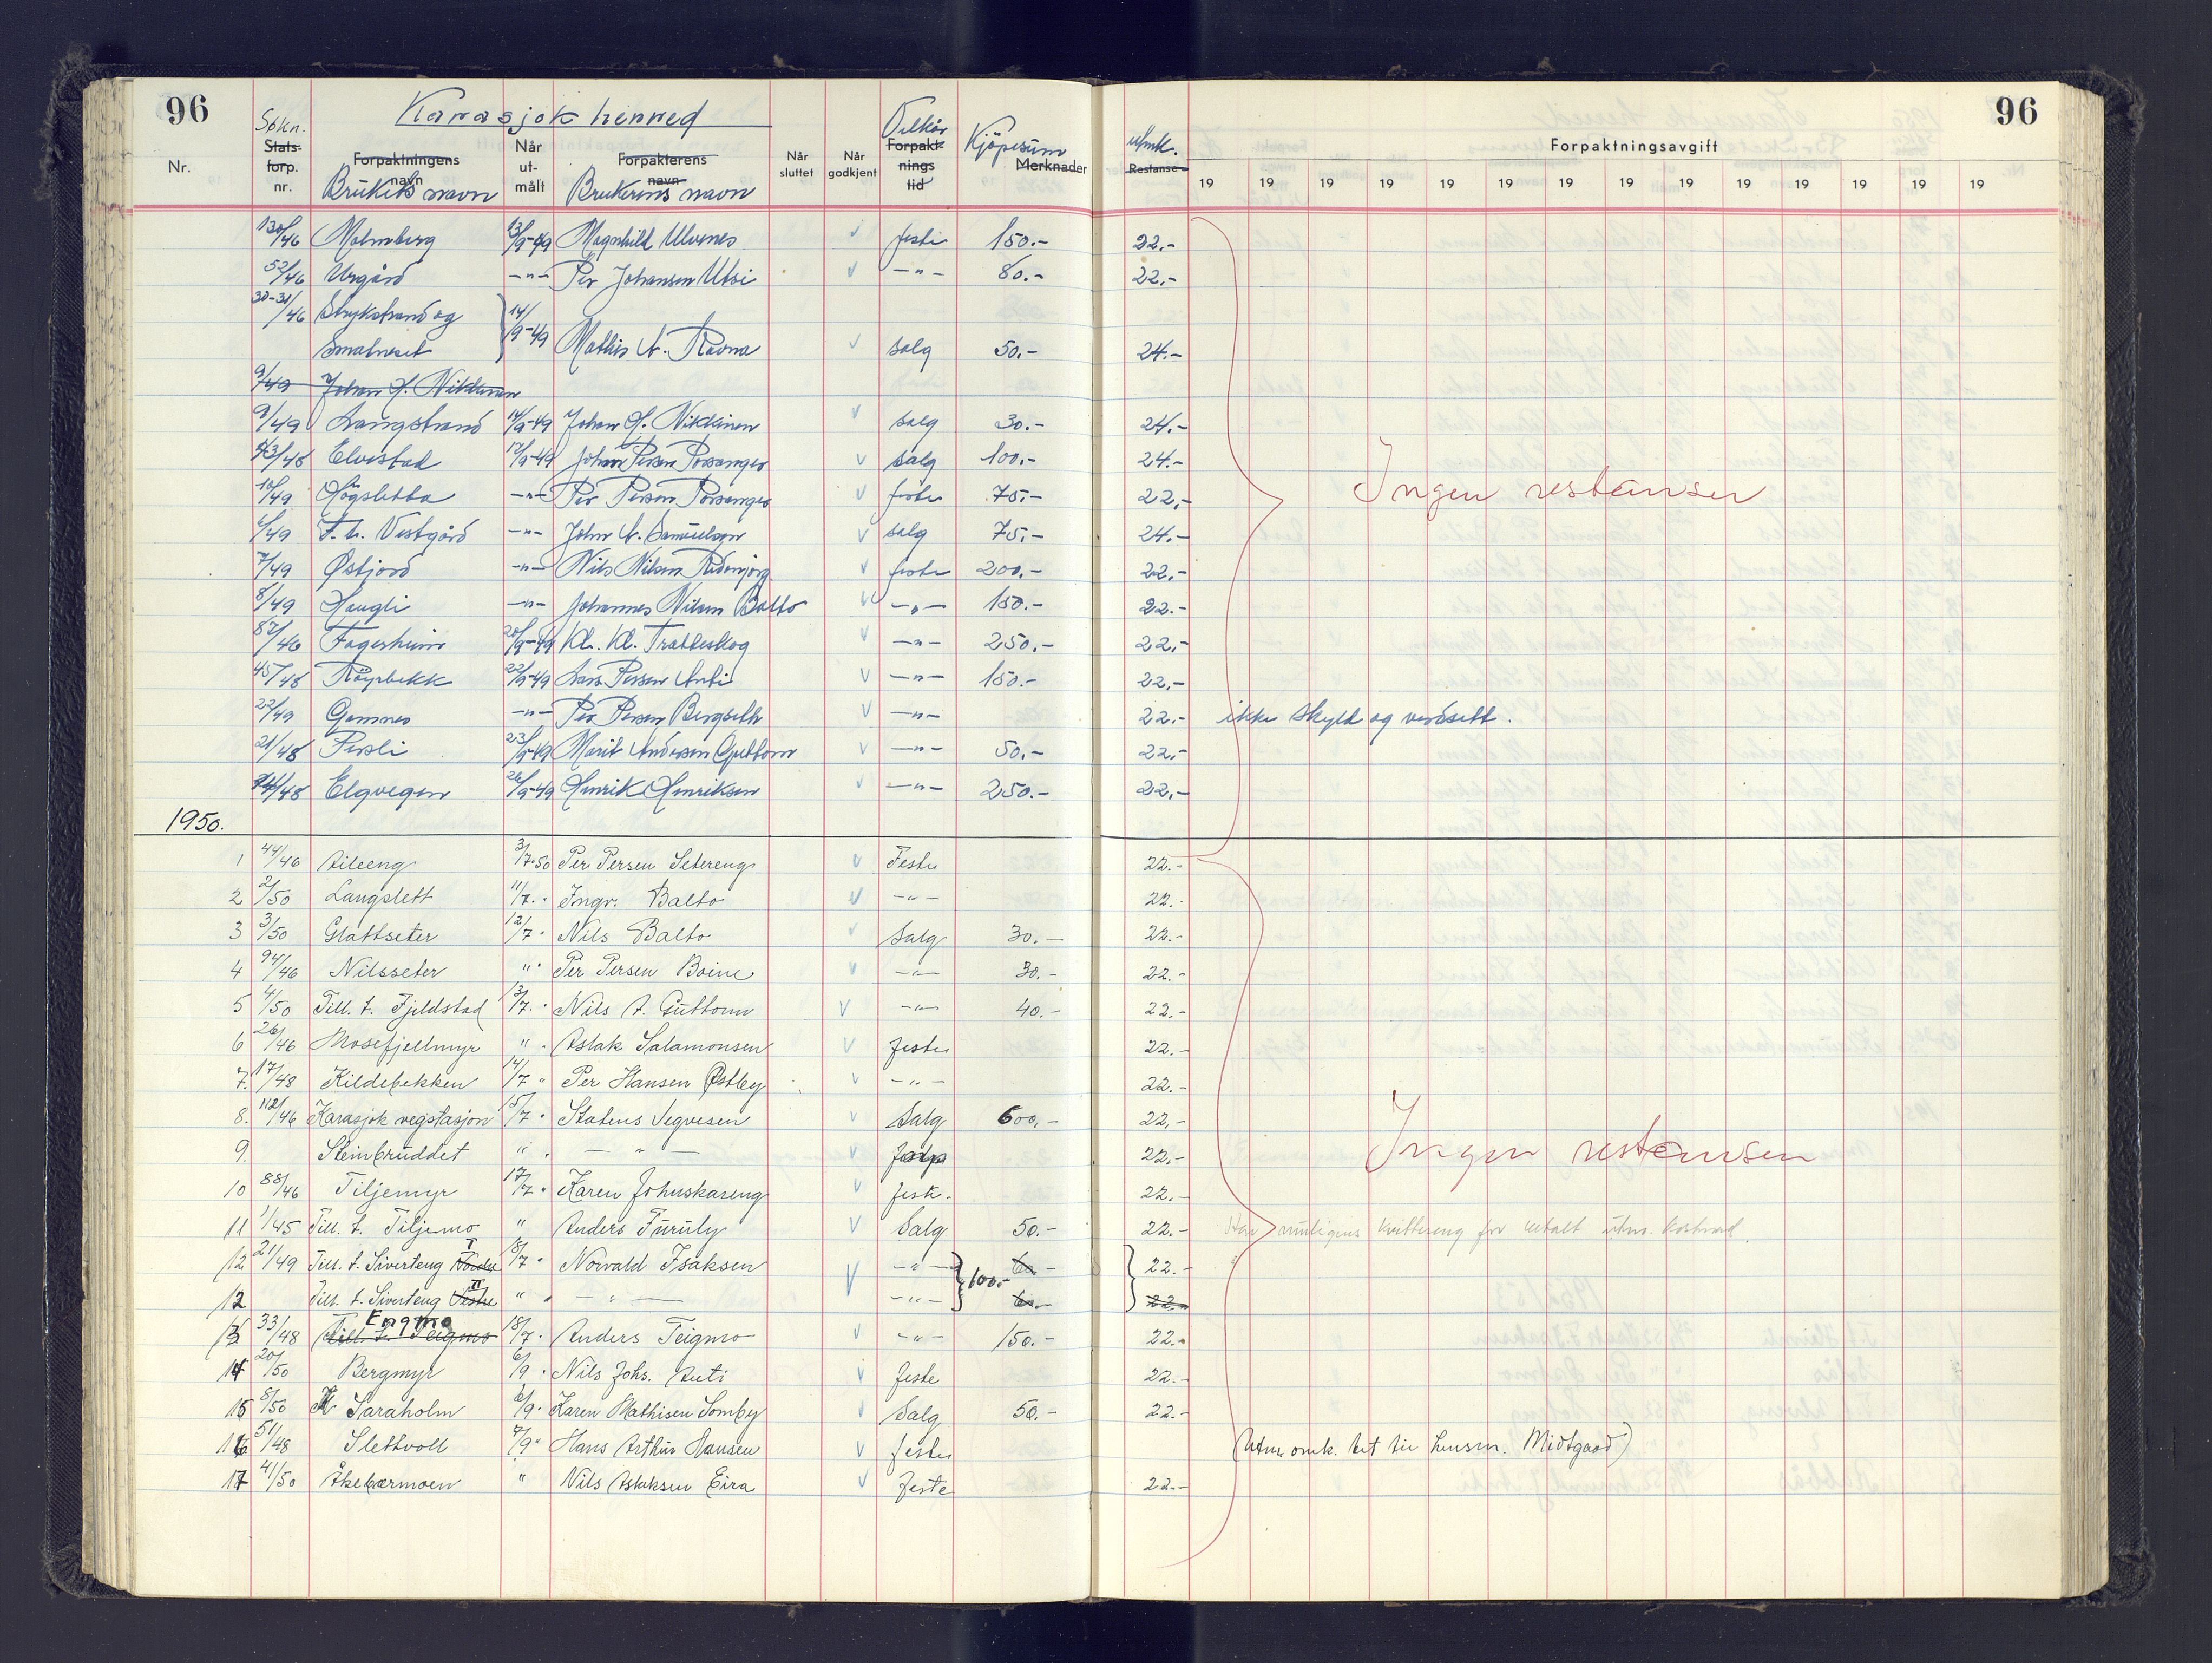 96
Søkn.
Karasjok herred
Vilkår
Kjøpesum
utmk.
96
Nr.
Stats-
forp.
nr.
Forpaktningens
navn
Brukets navn
Når
ut-
målt
Forpakterens
navn
Brukerens navn
Når
sluttet
Når
godkjent
Forpakt-
nings
tid
Merknader
Restanse
Forpaktningsavgift
19 19 19 19 19 19 19 19 19 19 19 19 19 19
130/46 Malmberg 13/9-49 Magnhild Ulvenes v feste 150.- 22.-
52/46 Urgård -"- Per Johansen Utsi v -"- 80.- 22.-
30-31/46 Strykstrand og 14/9-49
Smalneset Mathis A. Ravna v salg 50.- 24.-
9/49 Johan H. Nikkinen
9/49 Langstrand 14/9-49 Johan H. Nikkinen v salg 30.- 24.-
43/48 Elvestad 17/9-49 Johan Persen Porsanger v salg 100.- 24.-
10/49 Høgsletta -"- Per Persen Porsanger v feste 75.- 22.-
Ingen restanser
6/49 T. t. Vestgård -"- John A. Samuelsen v salg 75.- 24.-
7/49 Østjord -"- Nils Nilsen v feste 200.- 22.-
8/49 Haugli -"- Johannes Nilsen Balto v -"- 150.- 22.-
82/46 Fagerheim 20/9-49 Kl. Kl. Tratteskog v -"- 250.- 22.-
45/48 Røyrbekk 22/9-49 Lars Persen Anti v -"- 150.- 22.-
22/49 Gamnes -"- Per Persen Bergseth v -"- 22.- ikke skyld og verdsatt.
21/48 Persli 23/9-49 Marit Andersen Guttorm v -"- 50.- 22.-
44/48 Elgvegen 26/9-49 Henrik Henriksen v -"- 250.- 22.-
1950.
1 44/46 Aileeng 3/7-50 Per Persen Setereng v Feste 22.-
2 2/50 Langslett 11/7. " Ingv. Balto v -"- 22.-
3 3/50 Glattseter 12/7 " Nils Balto v Salg 30.- 22.-
4 94/46 Nilsseter " " Per Persen Boine v -"- 30.- 22.-
5 4/50 Till. t. Fjeldstad 13/7. " Nils A. Guttorm v -"- 40.- 22.-
6 26/46 Mosefjellmyr " " Aslak Salamonsen v Feste 22.-
7. 17/48 Kildebekken 14/7 " Per Hansen Østby v -"- 22.-
8. 112/46 Karasjok vegstasjon 15/7 " Statens Vegvesen v Salg 600.- 22.-
9. Steinbruddet " " - " - v 22.-
Ingen restanser
10 88/46 Tiljemyr 17/7 " Karen Johnskareng v feste. 22.-
11 1/45 Till. t. Tiljemo " Anders Furuly v Salg 50.- 22.- Har muligens kvittering for betalt utm. kostnad.
12 21/49 Till. t. Siverteng Nordre I 18/7 " Norvald Isaksen v -"- 100.- 60.- 22.-
12 Till. t. Siverteng Vestre II " " - " - -"- 60.- 22.-
13 33/48 Till. t. Teigmo Engmo 18/7. Anders Teigmo v -"- 150.- 22.-
14 20/50 Bergmyr 6/9 " Nils Johs. Anti v Feste 22.-
15 8/50 Saraholm 6/9. Karen Mathisen Somby v Salg 50.- 22.-
16 51/48 Slettvoll 7/9 " Hans Arthur Hansen v feste (Utm. omk. bet til lensm. Midtgaard)
17 41/50 Åkebærmoen " Nils Aslaksen Eira v Feste 22.-